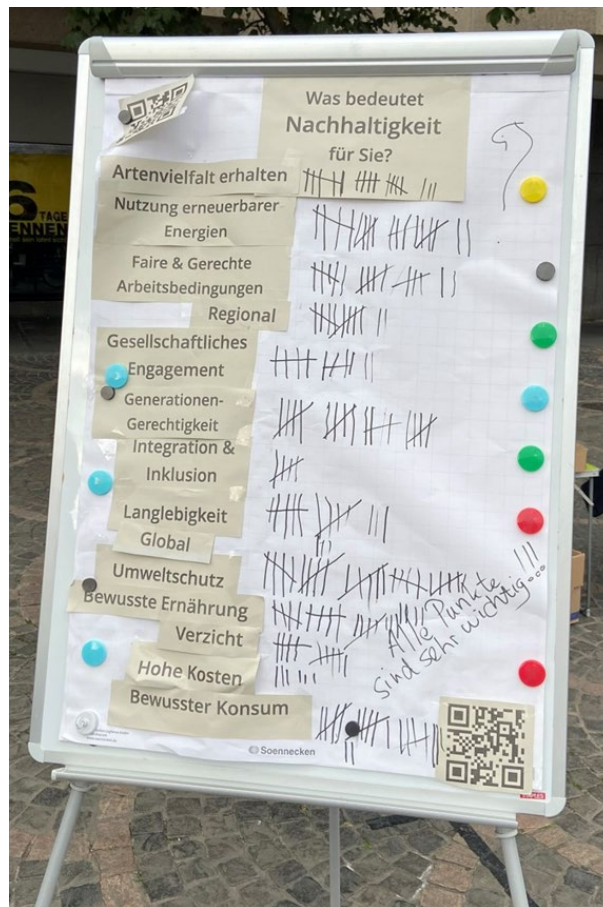 Was bedeutet
Nachhaltigkeit
für Sie?
Artenvielfalt erhalten
Nutzung erneuerbarer
Energien
Faire & Gerechte
Arbeitsbedingungen
Regional
Gesellschaftliches
Engagement
Generationen-
Gerechtigkeit
Integration &
Inklusion
Langlebigkeit
Global
Umweltschutz
Bewusste Ernährung
Verzicht
Hohe Kosten
Bewusster Konsum
Alle Punkte
sind sehr wichtig...
!!!
Soennecken
6
TAGE
ENNEN
STAPLES